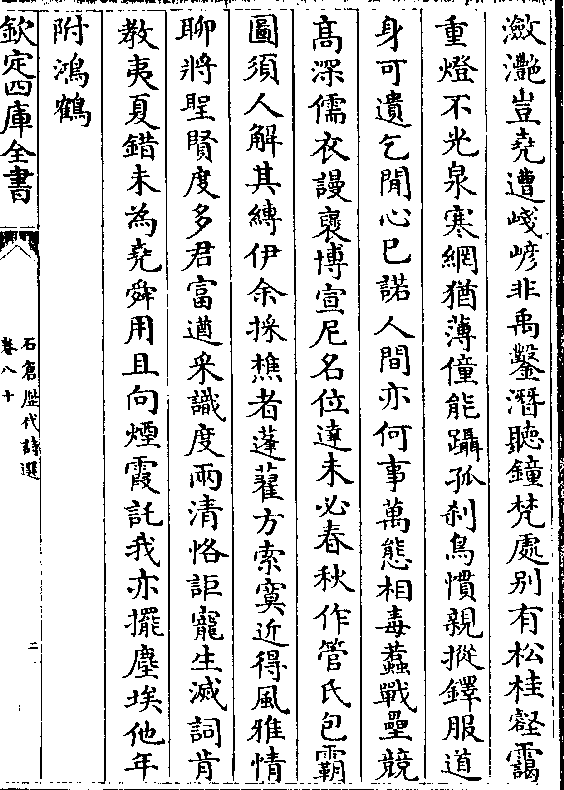 瀲灔豈堯遭嶘嵃非禹鑿潛聽鐘梵處别有松桂壑靄
重燈不光泉寒網猶薄僮能躡孤刹鳥慣親摐鐸服道
身可遺乞閒心已諾人間亦何事萬態相毒蠚戰壘競
髙深儒衣謾襃博宣尼名位達未必春秋作管氏包霸
圖須人解其縛伊余採樵者蓬藋方索寞近得風雅情
聊將聖賢度多君富遒采識度兩清恪詎寵生滅詞肯
教夷夏錯未為堯舜用且向煙霞託我亦擺塵埃他年
附鴻鶴
欽定四庫全書
石倉歴代詩選
卷八十
二